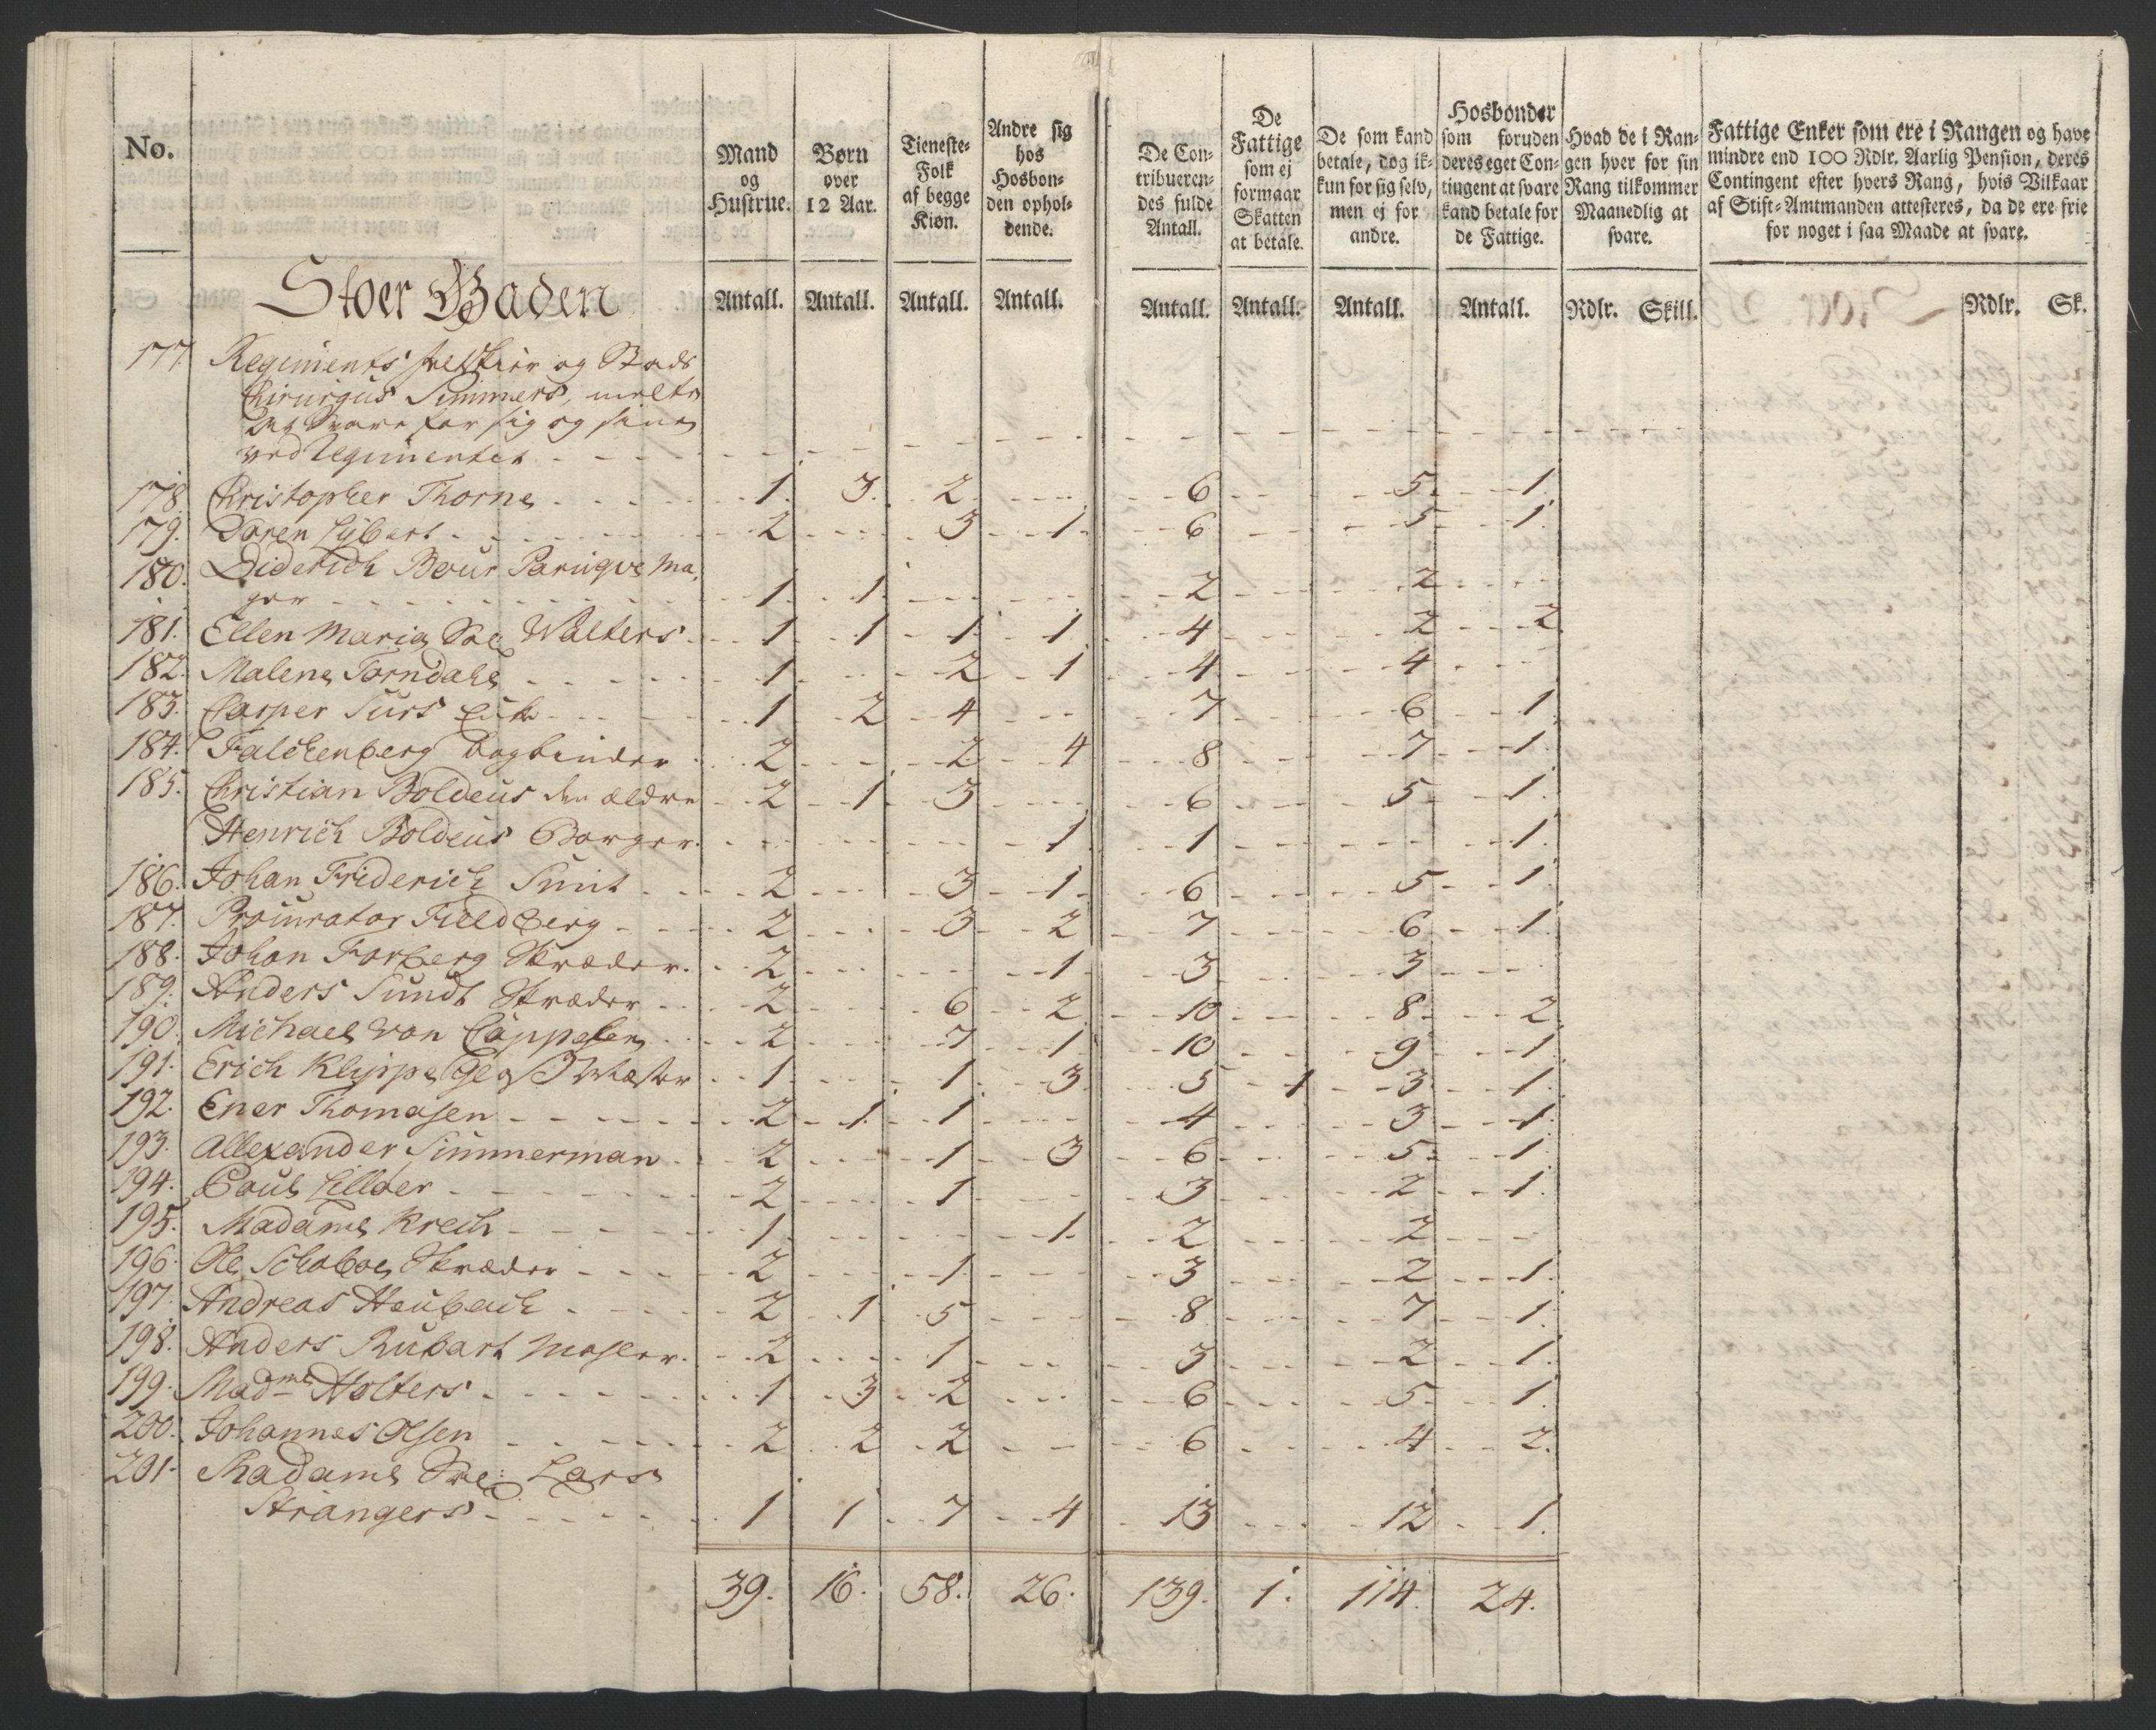 No.
Mand og Hustrue.
Børn over 12 Aar.
Tieneste-Folk af begge Kiøn.
Andre sig hos Hosbonden opholdende.
De Contribuerendes fulde Antall.
De Fattige som ej formaar Skatten at betale.
De som kand betale, dog ikkun for sig selv, men ej for andre.
Hosbonder som foruden deres eget Contingent at svare kand betale for de Fattige.
Hvad de i Rangen hver for sin Rang tilkommer Maanedlig at svare.
Fattige Enker som ere i Rangen og have mindre end 100 Rdlr. Aarlig Pension, deres Contingent efter hvers Rang, hvis Vilkaar af Stift-Amtmanden attesteres, da de ere frie for noget i saa Maade at svare.
Stoer Gaden Antall. Antall. Antall. Antall. Antall. Antall. Antall. Antall. Rdlr. Skill. Rdlr. Sk.
177. Regiments feltskier og Stads
Chirurgus Simmers,
svare for sig og sine
ved Regimentet
178. Christopher Thorne 1. 3. 2. 6 5. 1.
179. Søren Lybert 2 3 1. 6 5 1.
180. Diderich Bour Paruqve Ma-
ger 1. 1. 2 2
181. Ellen Maria Sal Walters 1 1 1. 1 4 2 2.
182. Malene Torndahl 1 2 1 4 4
183. Casper Surs Enke 1 2 4 7 6 1.
184. Falchenberg bogbinder 2 2 4 8 7 1.
185. Christian Boldeus den ældre 2 1. 3 6 5 1.
Henrich Boldeus Borger. 1. 1 1.
186. Johan Friderich Smit 2 3 1. 6 5 1.
187. Procurator Fieldberg 2 3 2 7 6 1.
188. Johan Forberg Skræder. 2 1. 3 3
189. Anders Sundt Skræder 2 6 2 10 8 2.
190. Michael von Cappelen 2 7 1 10 9 1.
191. Erich Klippe 1. 1. 3. 5 1 3. 1.
192. Ener Thomasen 2 1. 1. 4 3 1.
193. Allexander Simmerman 2 1 3 6 5. 1.
194. Poul Lilloer 2 1 3 2 1.
195. Madame Kreich 1. 1. 2 2
196. Ole Schaboe Skræder 2 1. 3 2 1.
197. Andreas Heubach 2 1 5 8 7 1.
198. Anders Rubart Masler. 2 1 3 2 1.
199. Madme Holters 1 3 2 6 5. 1.
200. Johannes Olsen 2 2 2 6 4 2.
201. Madame Sal: Lars
Strangers 1 1 7 4 13 12 1.
39. 16. 58. 26. 139. 1. 114. 24.